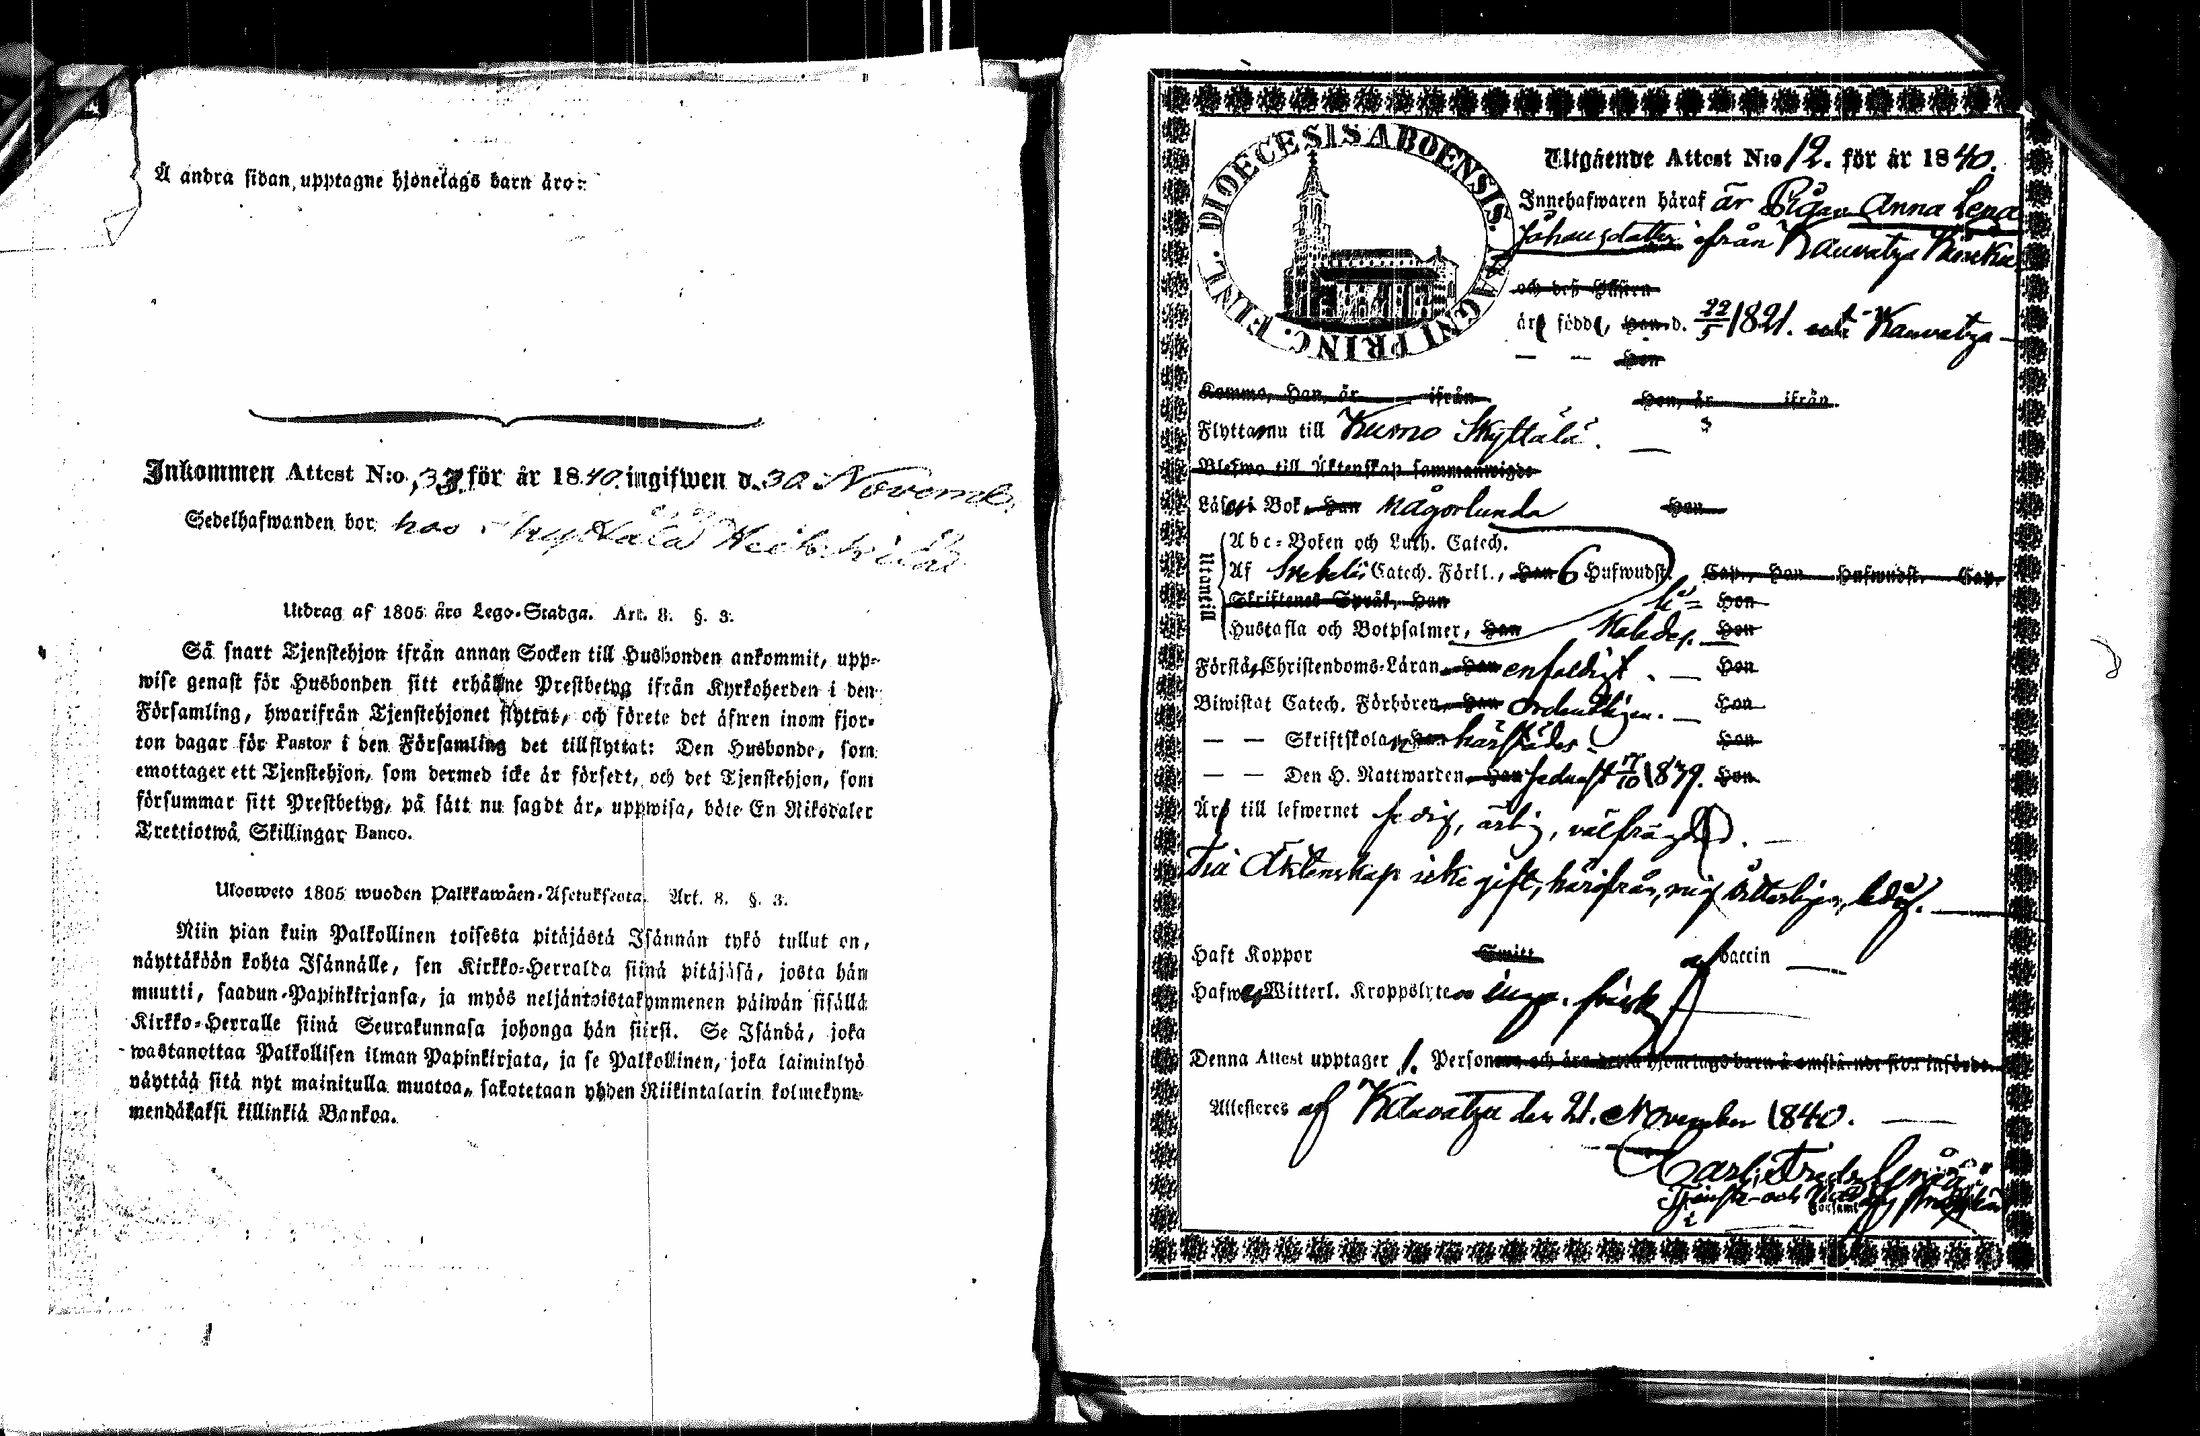 Å andra sidan, upptagne hjonelags barn äro:
Inkommen Attest N:o 33 för år 1840. ingifwen d. 30 Novemb.
Sedelhafwanden bor hos Skyttälä
Utdrag af 1805 års Lego-Stadga. Art. 8. §. 3.
Så snart Tjenstehjon ifrån annan Socken till Husbonden ankommit, upp-
wise genast för Husbonden sitt erhållne Prestbetyg ifrån Kyrkoherden i den
Församling, hwarifrån Tjenstehjonet flyttat, och förete det äfwen inom fjor-
ton dagar för Pastor i den Församling det tillflyttat: Den Husbonde, som
emottager ett Tjenstehjon, som dermed icke är försedt, och det Tjenstehjon, som
försummar sitt Prestbetyg, på sätt nu sagdt är, uppwisa, böte En Riksdaler
Trettiotwå Skillingar Banco.
Ulosweto 1805 wuoden Palkkawäen-Asetuksesta. Art. 8. §. 3.
Niin pian kuin Palkollinen toisesta pitäjästä Isännän tykö tullut on,
näyttäköön kohta Isännälle, sen Kirkko-Herralda siinä pitäjäsä, josta hän
muutti, saadun Papinkirjansa, ja myös neljäntoistakymmenen päiwän sisällä
Kirkko-Herralle siinä Seurakunnasa johonga hän siirsi. Se Isändä, joka
wastanottaa Palkollisen ilman Papinkirjata, ja se Palkollinen, joka laiminlyö
näyttää sitä nyt mainitulla muotoa, sakotetaan yhden Riikintalarin kolmekym-
mendäkaksi killinkiä Bankoa.
DIOECESIS ABOENSIS. MAGNI PRINC. FINL.
Utgående Attest N:o 12. för år 1840.
Innehafwaren häraf är Pigan Anna Lena
Johansdotter ifrån Kauvatza
och deß Hustru
äro född, Han d. 22/5 1821. uti Kauvatza
— — Hon
Komne, Han, år ifrån Hon, år ifrån
Flyttar nu till Kumo Skyttälä.
Blefwo till Äktenskap sammanwigde
Läser i Bok, Han någorlunda Hon
Utantill
Abc-Boken och Luth. Catech.
Af Svebelii Catech. Förkl., Han 6 Hufwudst. Cap., Hon Hufwudst. Cap.
Skriftenes Språk, Han Hon
Hustafla och Botpsalmer, Han Hon
Förstår Christendoms-Läran, Han enfaldigt. Hon
Biwistat Catech. Förhören, Han ordentligen. Hon
— — Skriftskolan, Han härstädes Hon
— — Den H. Nattwarden, Han sednast 17/10 1839. Hon
Äro till lefwernet sedig, ärlig, välfrägdad.
Till Äktenskap icke gift, härifrån, mig vitterligen, ledig.
Haft Koppor Smitt af baccin
Hafwer Witterl. Kroppslyte inga. frisk
Denna Attest upptager 1. Person och äro detta hjonelags barn å omstående sida införde.
Attesteras af Kauvatza den 21. November 1840.
Carl Fredr.